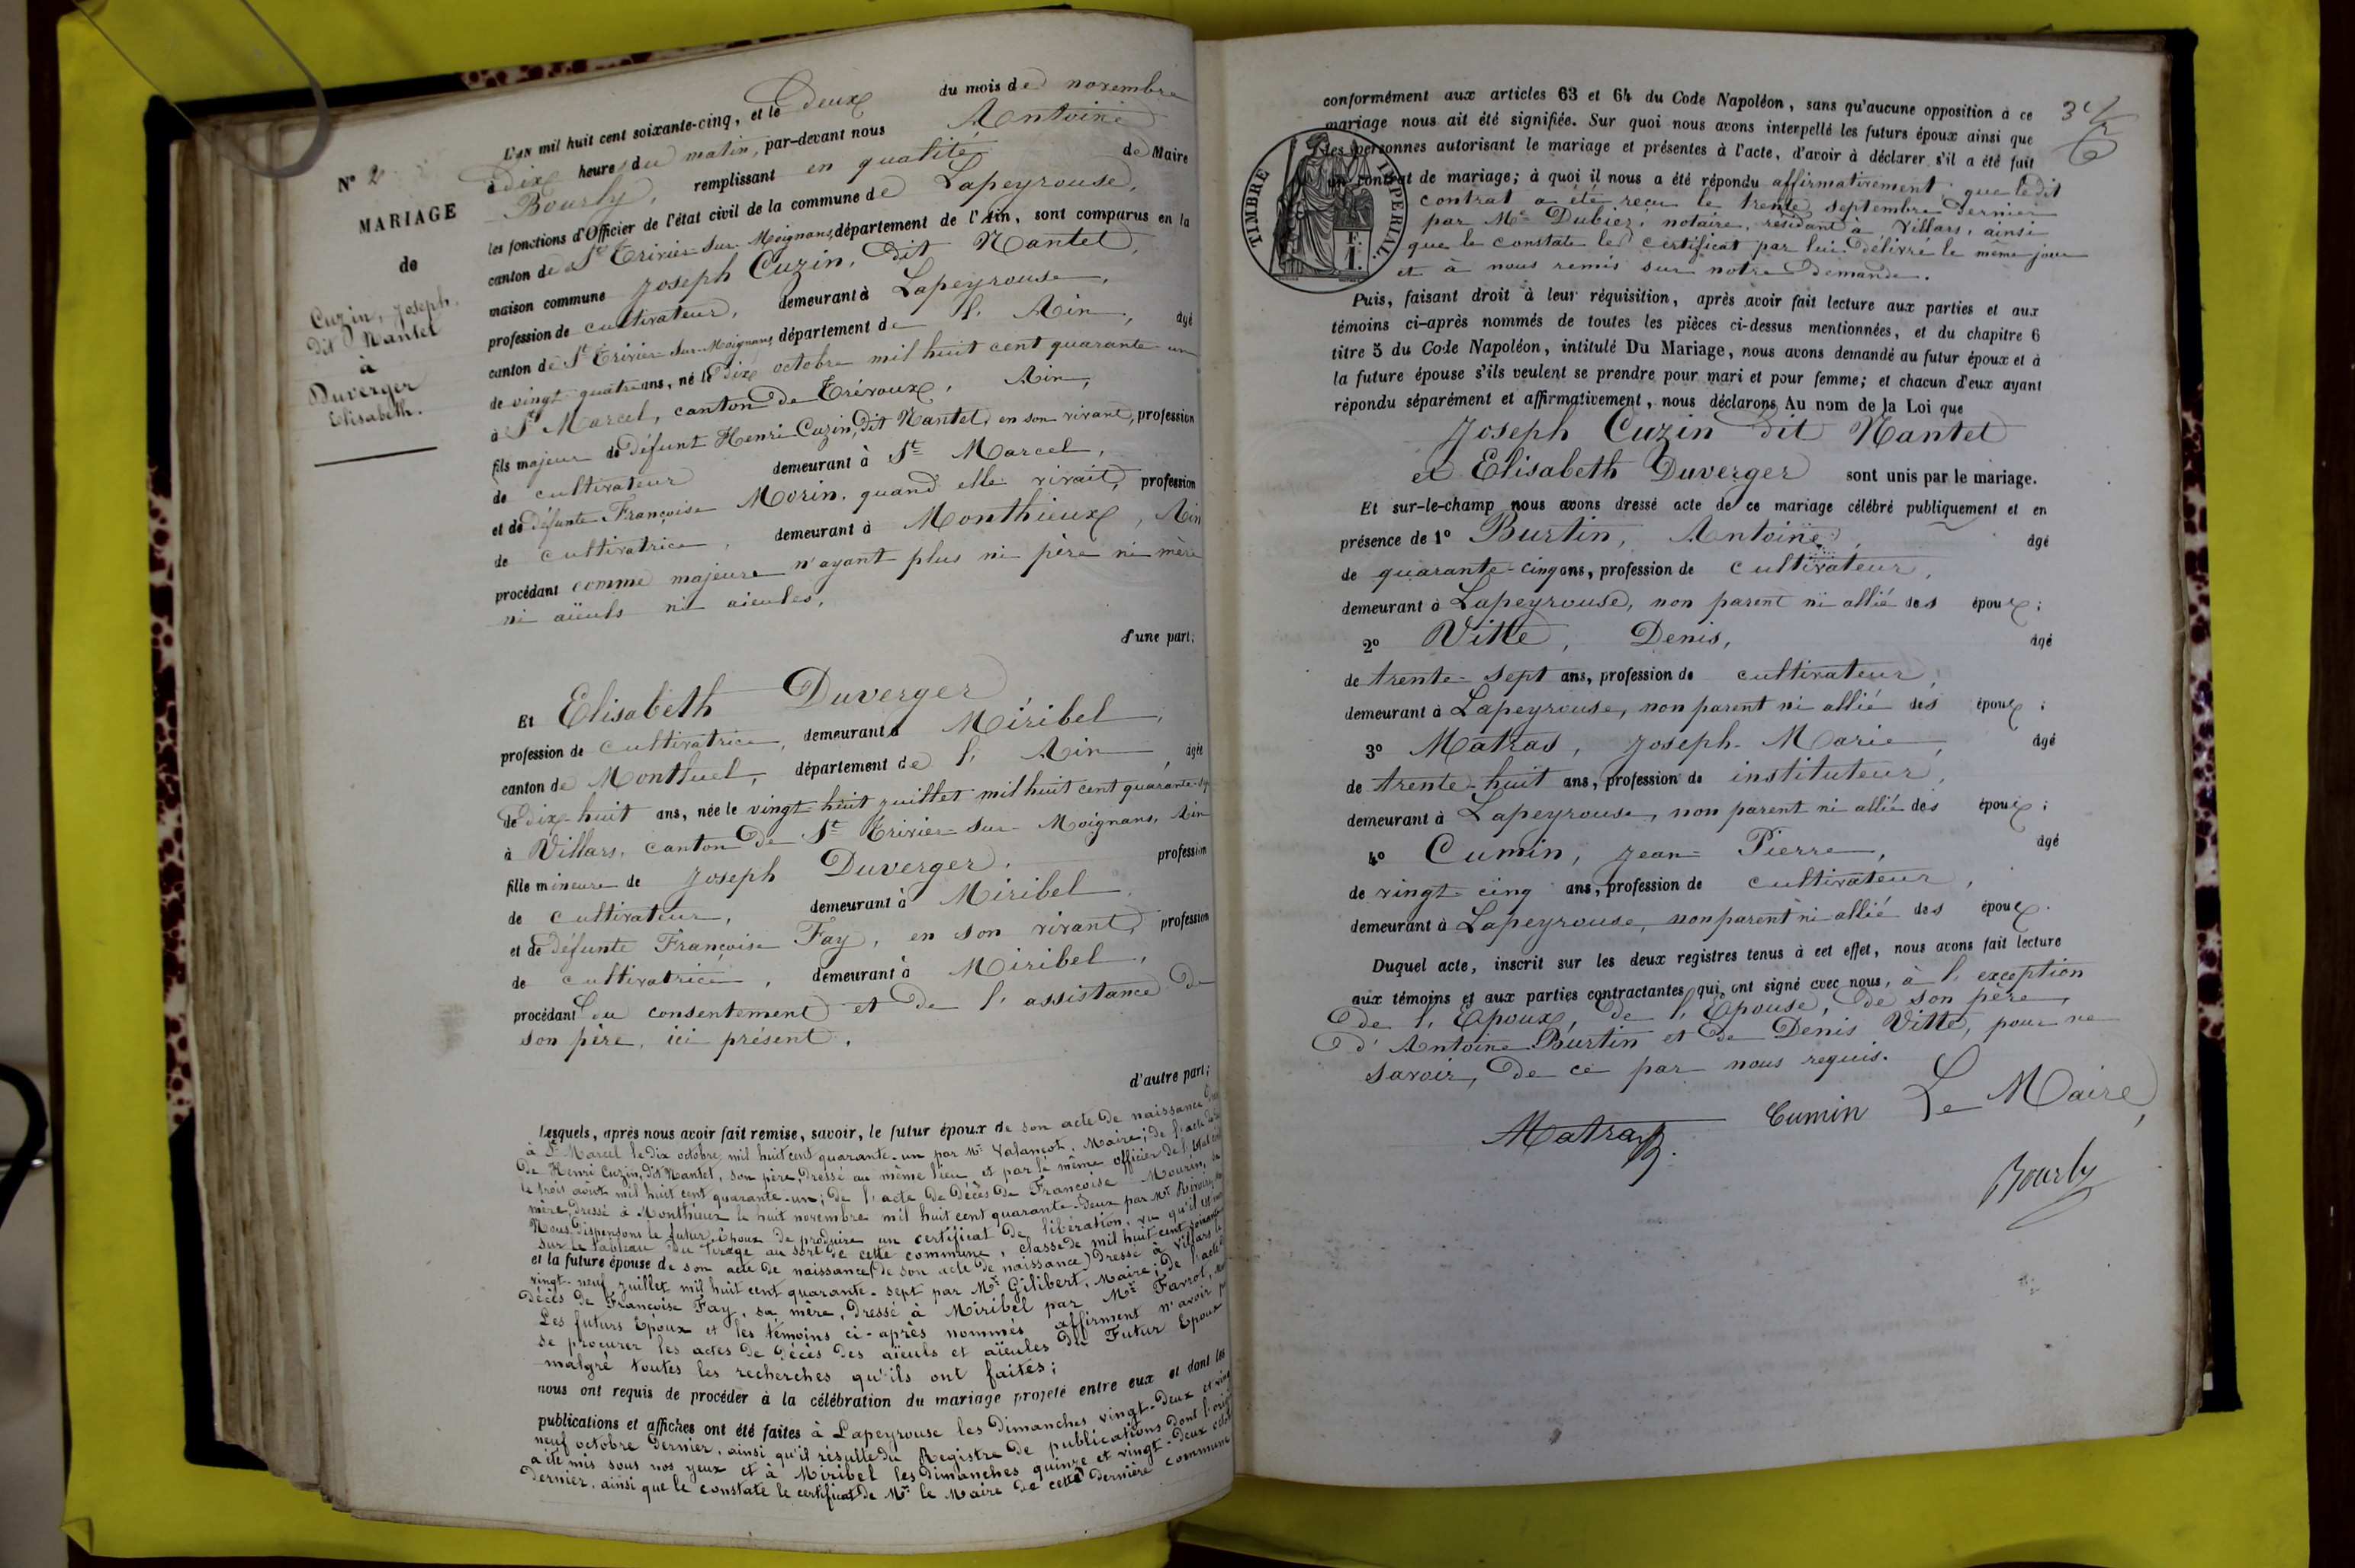 L'an mil huit cent soixante-cinq, et le Deux du mois de novembre
à Dix heures du matin, par-devant nous Antoine
Bourly, remplissant en qualité de Maire
les fonctions d'Officier de l'état civil de la commune de Lapeyrouse,
canton de St Trivier-sur-Moignans, département de l'Ain, sont comparus en la
maison commune Joseph Cuzin, dit Nantet,
profession de cultivateur, demeurant à Lapeyrouse,
canton de St Trivier-sur-Moignans, département de l'Ain, âgé
de vingt-quatre ans, né le Dix octobre mil huit cent quarante-un
à St Marcel, canton de Trévoux, Ain,
fils majeur de défunt Henri Cuzin, dit Nantet, en son vivant, profession
de cultivateur demeurant à St Marcel,
et de défunte Françoise Morin, quand elle vivait, profession
de cultivatrice, demeurant à Monthieux, Ain
procédant comme majeure n'ayant plus ni père ni mère
ni aïeuls ni aieules,
d'une part;
N° 2
MARIAGE
de
Cuzin, Joseph,
dit Nantet
à
Duverger
Elisabeth.
Et Elisabeth Duverger
profession de cultivatrice, demeurant à Miribel,
canton de Montluel, département de l'Ain âgée
de dix-huit ans, née le vingt-huit juillet mil huit cent quarante-sept
à Villars, canton de St Trivier-sur-Moignans, Ain
fille mineure de Joseph Duverger, profession
de cultivateur, demeurant à Miribel,
et de défunte Françoise Fay, en son vivant, profession
de cultivatrice, demeurant à Miribel,
procédant du consentement et de l'assistance de
son père, ici présent,
d'autre part;
Lesquels, après nous avoir fait remise, savoir, le futur époux de son acte de naissance
à St Marcel le dix octobre mil huit cent quarante-un par Mr Valançot, Maire; de l'acte de
de Henri Cuzin, dit Nantet, son père, dressé au même lieu et par le même officier de l'état civil
le trois août mil huit cent quarante-un; de l'acte de décès de Françoise Mourin, sa
mère, dressé à Monthieux le huit novembre mil huit cent quarante-deux par Mr
Nous dispensons le futur époux de produire un certificat de libération, vu qu'il est
sur le tableau du tirage au sort de cette commune, classe de mil huit cent soixante
et la future épouse de son acte de naissance (de son acte de naissance) dressé à Villars le
vingt-neuf juillet mil huit cent quarante-sept par Mr Gilibert, Maire; de l'acte de
décès de Françoise Fay, sa mère, dressé à Miribel par Mr Favrot,
Les futurs Epoux et les témoins ci-après nommés affirment n'avoir pu
se procurer les actes de décès des aïeuls et aïeules du Futur Epoux
malgré toutes les recherches qu'ils ont faites;
nous ont requis de procéder à la célébration du mariage projeté entre eux et dont les
publications et affiches ont été faites à Lapeyrouse les Dimanches vingt-deux et vingt
neuf octobre dernier, ainsi qu'il résulte du Registre de publications dont l'original
a été mis sous nos yeux et à Miribel les Dimanches quinze et vingt-deux octobre
dernier, ainsi que le constate le certificat de Mr le Maire de cette dernière commune
conformément aux articles 63 et 64 du Code Napoléon, sans qu'aucune opposition à ce
mariage nous ait été signifiée. Sur quoi nous avons interpellé les futurs époux ainsi que
les personnes autorisant le mariage et présentes à l'acte, d'avoir à déclarer s'il a été fait
un contrat de mariage; à quoi il nous a été répondu affirmativement que le dit
contrat a été reçu le trente septembre dernier
par Me Dubiez, notaire, résidant à Villars, ainsi
que le constate le certificat par lui délivré le même jour
et à nous remis sur notre demande.
TIMBRE IMPÉRIAL.
F.
1.
Puis, faisant droit à leur réquisition, après avoir fait lecture aux parties et aux
témoins ci-après nommés de toutes les pièces ci-dessus mentionnées, et du chapitre 6
titre 5 du Code Napoléon, intitulé Du Mariage, nous avons demandé au futur époux et à
la future épouse s'ils veulent se prendre pour mari et pour femme; et chacun d'eux ayant
répondu séparément et affirmativement, nous déclarons Au nom de la Loi que
Joseph Cuzin dit Nantet
et Elisabeth Duverger sont unis par le mariage.
Et sur-le-champ nous avons dressé acte de ce mariage célébré publiquement et en
présence de 1° Burtin, Antoine, âgé
de quarante-cinq ans, profession de cultivateur,
demeurant à Lapeyrouse, non parent ni allié des époux;
2° Vitte, Denis, âgé
de trente-sept ans, profession de cultivateur,
demeurant à Lapeyrouse, non parent ni allié des époux;
3° Matras, Joseph-Marie, âgé
de trente-huit ans, profession de instituteur,
demeurant à Lapeyrouse, non parent ni allié des époux;
4° Cumin, Jean-Pierre, âgé
de vingt-cinq ans, profession de cultivateur,
demeurant à Lapeyrouse, non parent ni allié des époux.
Duquel acte, inscrit sur les deux registres tenus à cet effet, nous avons fait lecture
aux témoins et aux parties contractantes qui ont signé avec nous, à l'exception
de l'Epoux, de l'Epouse, de son père,
d'Antoine Burtin et de Denis Vitte, pour ne
savoir, de ce par nous requis.
Matras Cumin Le Maire,
Bourly